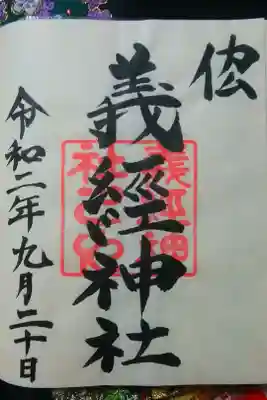 義經神社
令和二年九月二十日
義經神
社之印